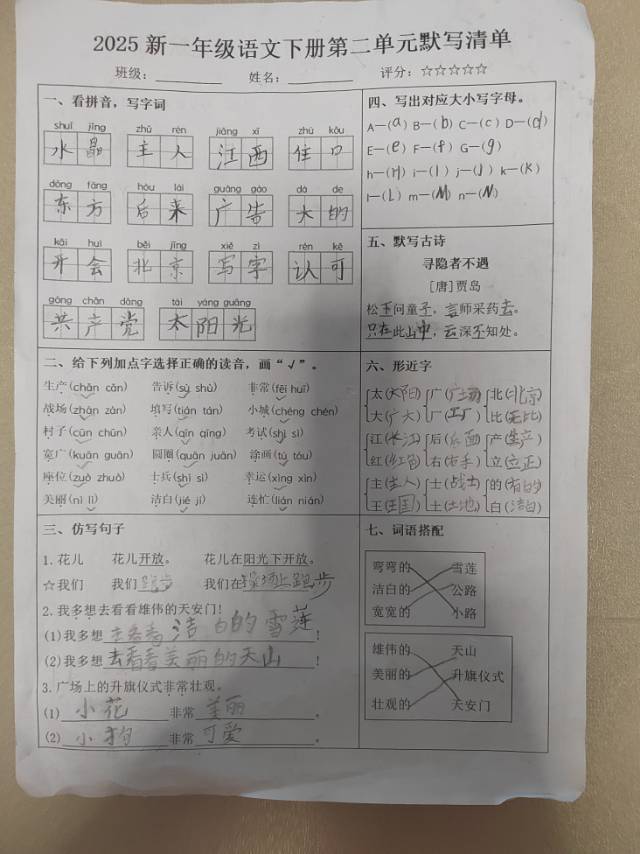 2025 新一年级语文下册第二单元默写清单
班级：
姓名：
评分：☆☆☆☆☆
一、看拼音，写字词
shuǐ jīng zhǔ rén jiāng xī zhù kǒu
水晶 主人 江西 住口
dōng fāng hòu lái guǎng gào dà de
东方 后来 广告 大的
kāi huì běi jīng xiě zì rèn kě
开会 北京 写字 认可
gòng chǎn dǎng tài yáng guāng
共产党 太阳光
二、给下列加点字选择正确的读音，画“√”。
生产(chǎn cǎn) 告诉(sù shù) 非常(fēi huī)
战场(zhàn zàn) 填写(tián tán) 小城(chéng chén)
村子(cūn chūn) 亲人(qīn qīng) 考试(shì sì)
宽广(kuān guǎn) 圆圈(quān juàn) 涂画(tú tóu)
座位(zuò zhuò) 士兵(shì sì) 幸运(xìng xìn)
美丽(nì lì) 洁白(jié jí) 连忙(lián nián)
三、仿写句子
1. 花儿 花儿开放。 花儿在阳光下开放。
☆我们 我们跑步 我们在操场上跑步
2. 我多想去看看雄伟的天安门！
(1)我多想去看看洁白的雪莲！
(2)我多想去看看美丽的天山！
3. 广场上的升旗仪式非常壮观。
(1)小花非常美丽。
(2)小狗非常可爱。
四、写出对应大小写字母。
A—(a) B—(b) C—(c) D—(d)
E—(e) F—(f) G—(g)
h—(H) i—(I) j—(J) k—(K)
l—(L) m—(M) n—(N)
五、默写古诗
寻隐者不遇
[唐]贾岛
松下问童子，言师采药去。
只在此山中，云深不知处。
六、形近字
太(太阳) 广(广场) 北(北京)
大(广大) 厂(工厂) 比(无比)
江(长江) 后(后面) 产(生产)
红(红色) 右(右手) 立(立正)
主(主人) 士(战士) 的(有的)
王(王国) 土(土地) 白(洁白)
七、词语搭配
弯弯的 雪莲
洁白的 公路
宽宽的 小路
雄伟的 天山
美丽的 升旗仪式
壮观的 天安门